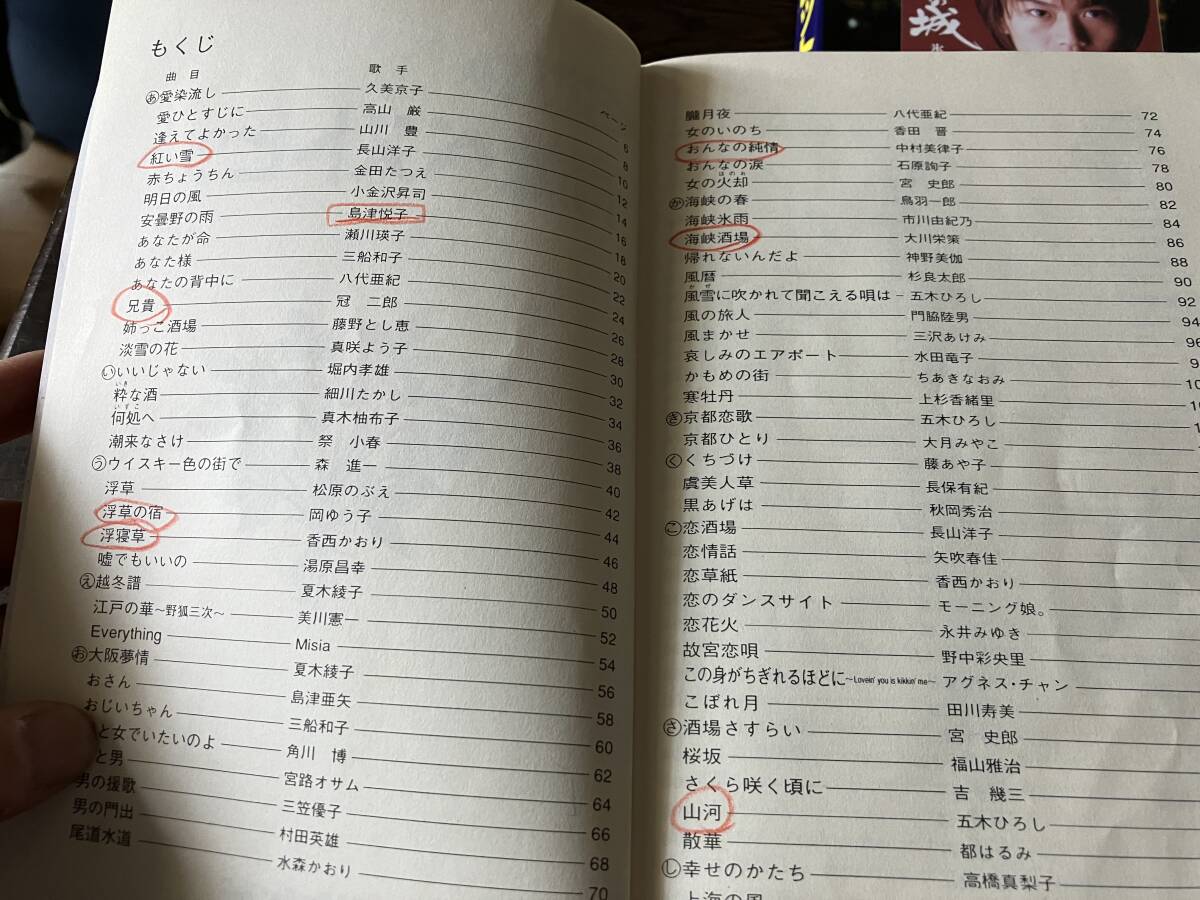 もくじ
曲目 歌手 ページ
あ 愛染流し 久美京子 6
愛ひとすじに 高山 厳 8
逢えてよかった 山川 豊 10
紅い雪 長山洋子 12
赤ちょうちん 金田たつえ 14
明日の風 小金沢昇司 16
安曇野の雨 島津悦子 18
あなたが命 瀬川瑛子 20
あなた様 三船和子 22
あなたの背中に 八代亜紀 24
兄貴 冠 二郎 26
姉っこ酒場 藤野とし恵 28
淡雪の花 真咲よう子 30
い いいじゃない 堀内孝雄 32
いき
粋な酒 細川たかし 34
いずこ
何処へ 真木柚布子 36
潮来なさけ 祭 小春 38
う ウイスキー色の街で 森 進一 40
浮草 松原のぶえ 42
浮草の宿 岡ゆう子 44
浮寝草 香西かおり 46
嘘でもいいの 湯原昌幸 48
え 越冬譜 夏木綾子 50
江戸の華～野狐三次～ 美川憲一 52
Everything Misia 54
お 大阪夢情 夏木綾子 56
おさん 島津亜矢 58
おじいちゃん 三船和子 60
と女でいたいのよ 角川 博 62
と男 宮路オサム 64
男の援歌 三笠優子 66
男の門出 村田英雄 68
尾道水道 水森かおり 70
朧月夜 八代亜紀 72
女のいのち 香田 晋 74
おんなの純情 中村美律子 76
おんなの涙 石原詢子 78
ほのお
女の火却 宮 史郎 80
か 海峡の春 鳥羽一郎 82
海峡氷雨 市川由紀乃 84
海峡酒場 大川栄策 86
帰れないんだよ 神野美伽 88
風暦 杉良太郎 90
かぜ
風雪に吹かれて聞こえる唄は 五木ひろし 92
風の旅人 門脇陸男 94
風まかせ 三沢あけみ 96
哀しみのエアポート 水田竜子
かもめの街 ちあきなおみ
寒牡丹 上杉香緒里
き 京都恋歌 五木ひろし
京都ひとり 大月みやこ
く くちづけ 藤あや子
虞美人草 長保有紀
黒あげは 秋岡秀治
こ 恋酒場 長山洋子
恋情話 矢吹春佳
恋草紙 香西かおり
恋のダンスサイト モーニング娘。
恋花火 永井みゆき
故宮恋唄 野中彩央里
この身がちぎれるほどに～Lovein' you is kikkin' me～ アグネス・チャン
こぼれ月 田川寿美
さ 酒場さすらい 宮 史郎
桜坂 福山雅治
さくら咲く頃に 吉 幾三
山河 五木ひろし
散華 都はるみ
し 幸せのかたち 高橋真梨子
上海の風
城